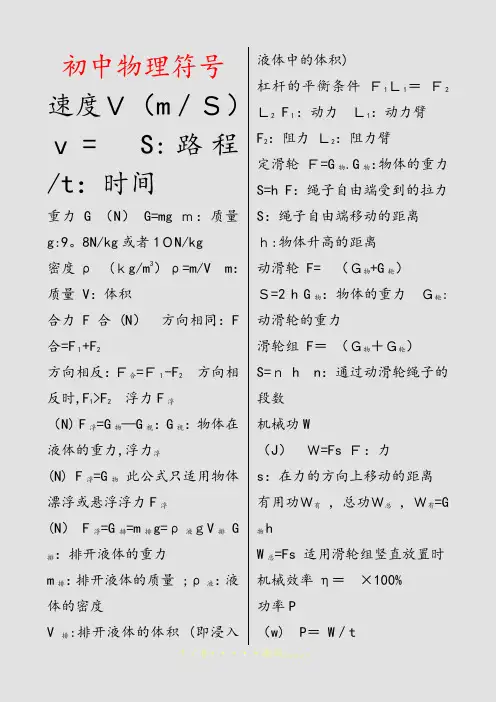 初中物理符号
速度V（m/S）
v= S:路程
/t: 时间
重力 G （N） G=mg m: 质量
g:9。8N/kg或者10N/kg
密度ρ （kg/m³）ρ=m/V m:
质量 V: 体积
合力 F 合(N） 方向相同: F
合=F₁+F₂
方向相反: F合=F₁-F₂ 方向相
反时,F₁>F₂ 浮力F浮
（N)F浮=G物—G视: G视: 物体在
液体的重力,浮力浮
(N) F浮=G物 此公式只适用物体
漂浮或悬浮浮力F浮
(N） F浮=G排=m排g=ρ液gV排 G
排: 排开液体的重力
m排: 排开液体的质量 ;ρ液: 液
体的密度
V排:排开液体的体积 (即浸入
液体中的体积)
杠杆的平衡条件 F₁L₁= F₂
L₂ F₁: 动力 L₁: 动力臂
F₂: 阻力 L₂: 阻力臂
定滑轮 F=G物.G物:物体的重力
S=h F: 绳子自由端受到的拉力
S: 绳子自由端移动的距离
h:物体升高的距离
动滑轮 F= （G物+G轮）
S=2 h G物: 物体的重力 G轮:
动滑轮的重力
滑轮组 F= （G物＋G轮）
S=n h n: 通过动滑轮绳子的
段数
机械功W
（J） W=Fs F: 力
s: 在力的方向上移动的距离
有用功W有 ,总功W总 , W有=G
物h
W总=Fs 适用滑轮组竖直放置时
机械效率 η= ×100%
功率P
（w) P= W/t